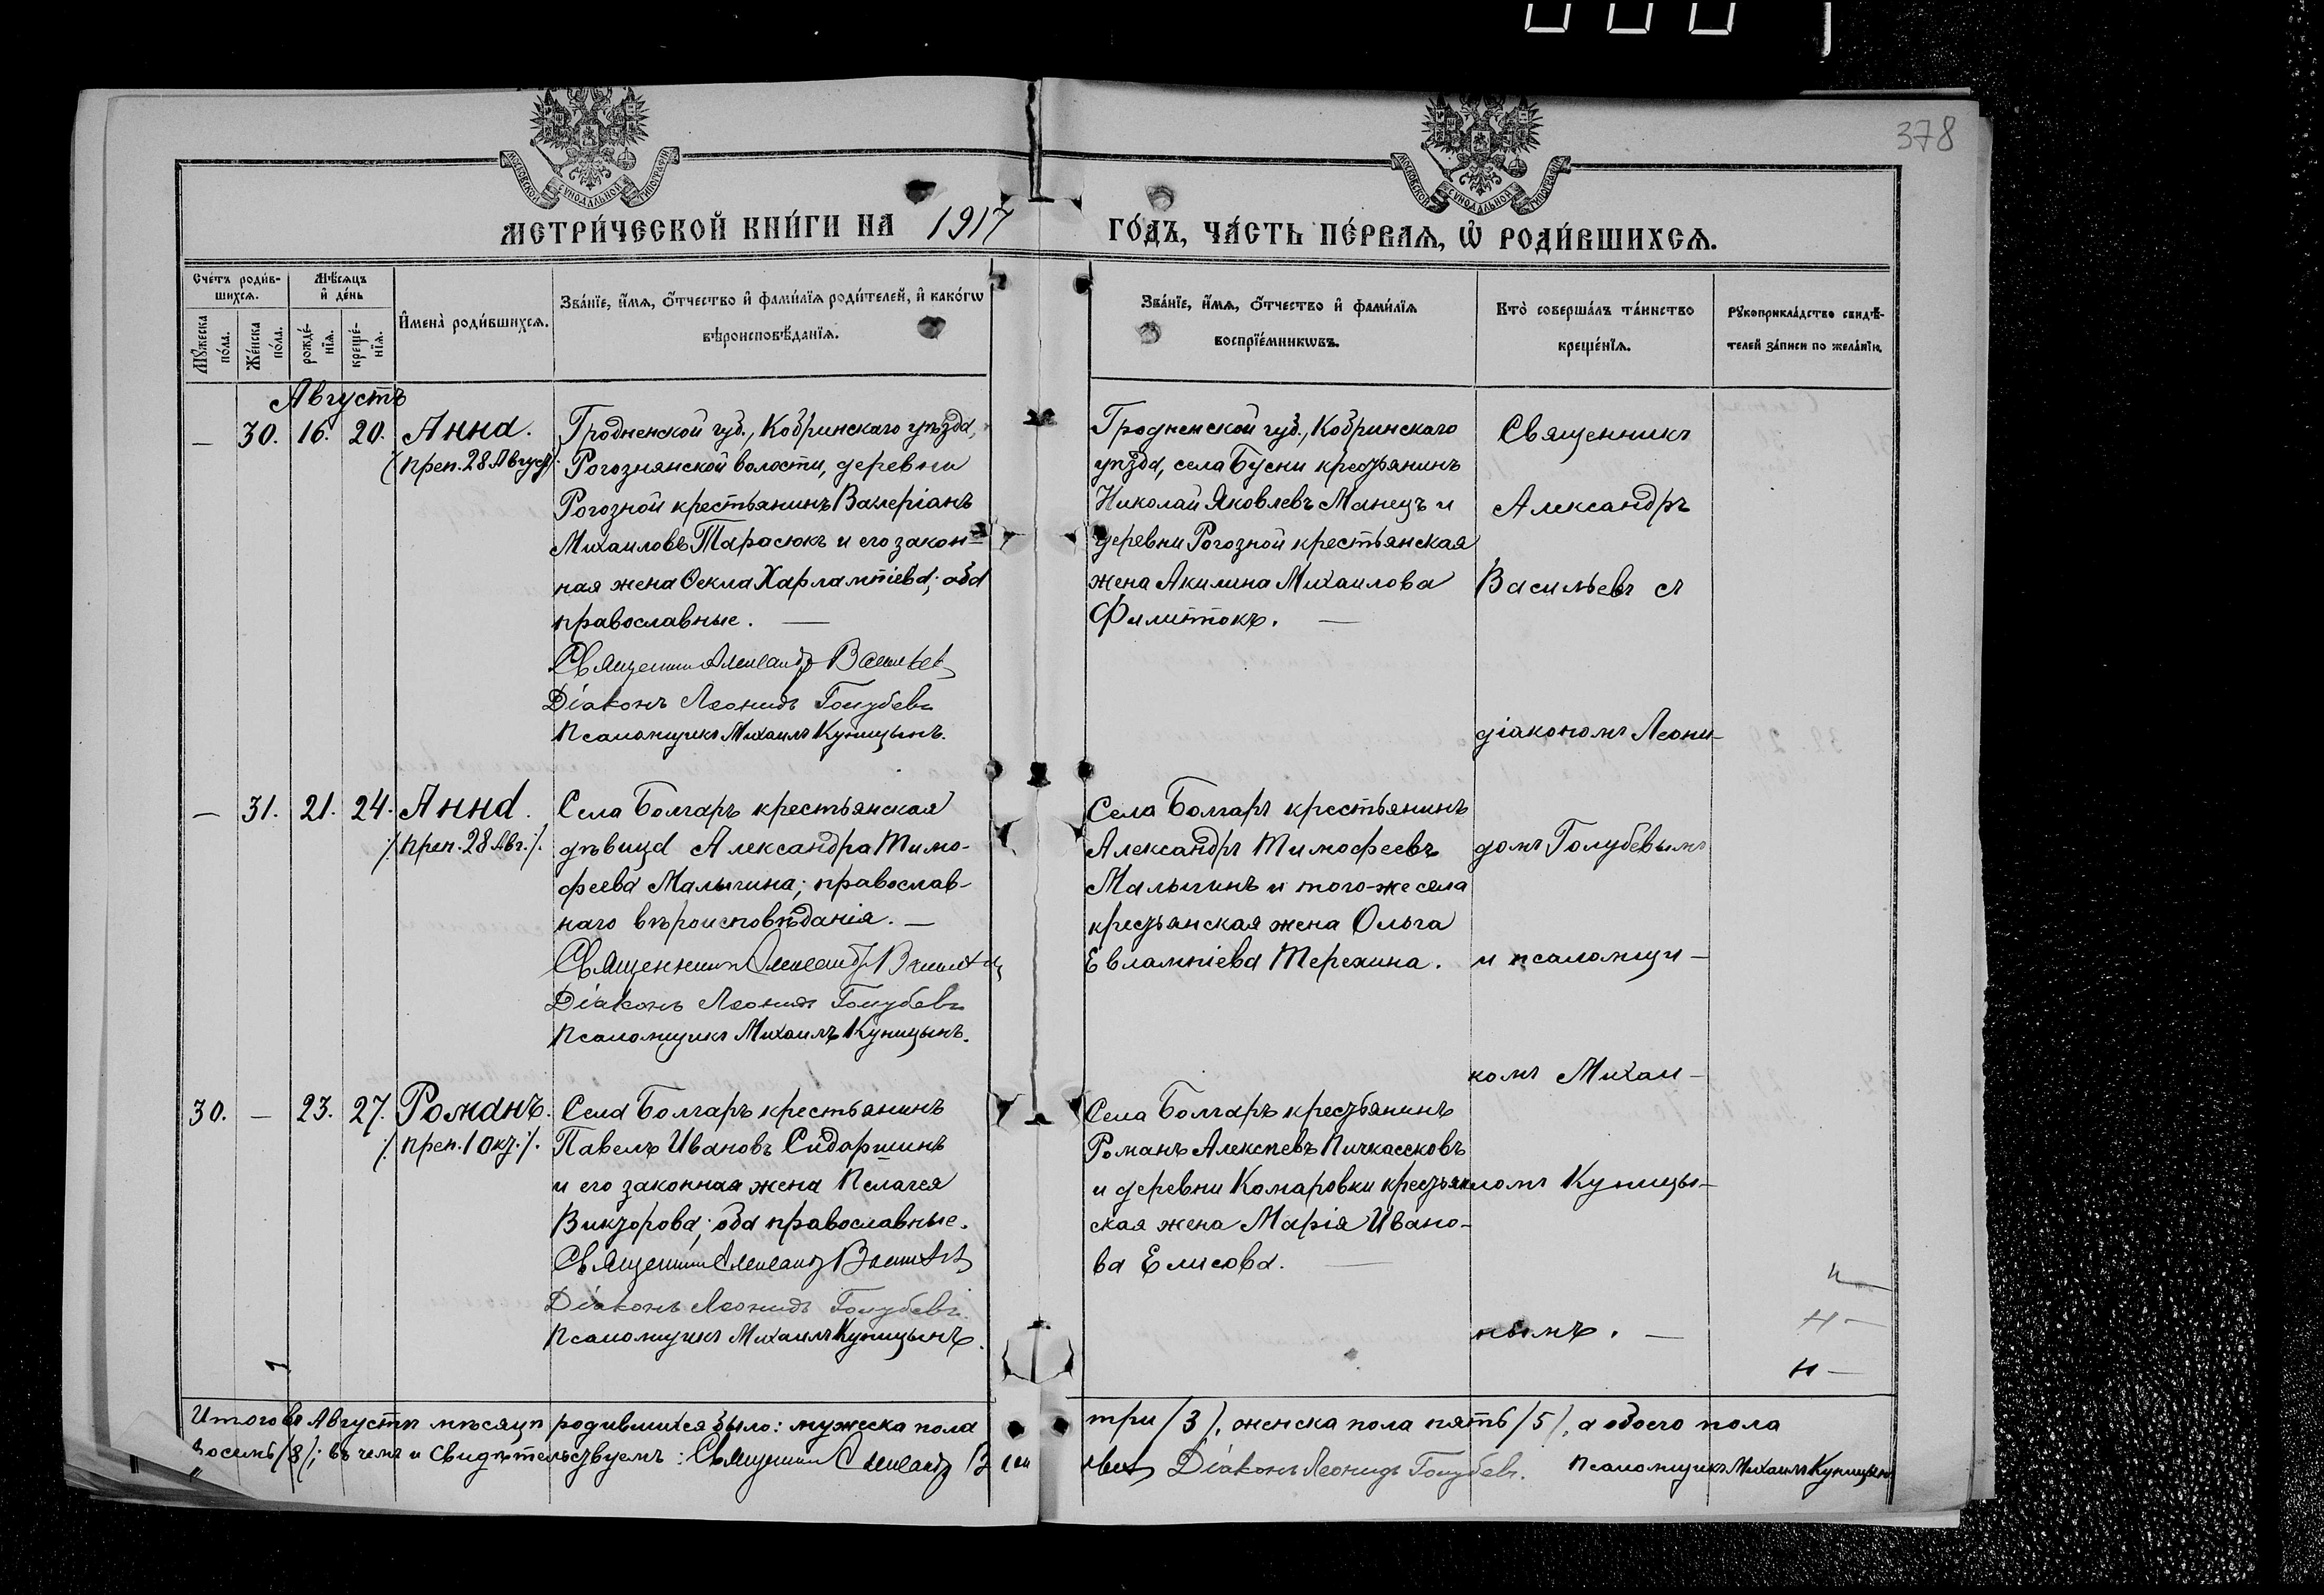 378
МОСКОВСКОЙ СѴНОДАЛЬНОЙ ТИПОГРАФІИ
МОСКОВСКОЙ СѴНОДАЛЬНОЙ ТИПОГРАФІИ
МЕТРИ́ЧЕСКОЙ КНИ́ГИ НА 1917 ГО́ДЪ, ЧА́СТЬ ПЕ́РВАѦ, Ѡ РОДИ́ВШИХСѦ.
Сче́тъ роди́в-
шихсѧ.
Мꙋ́жеска
по́ла.
Же́нска
по́ла.
Мѣ́сѧцъ
и де́нь
рожде́-
нїѧ.
креще́-
нїѧ.
Имена̀ роди́вшихсѧ.
Зва́нїе, и́мѧ, о́тчество и фами́лїѧ роди́телей, и како́гѡ
вѣроисповѣ́данїѧ.
Зва́нїе, и́мѧ, о́тчество и фами́лїѧ
воспрїе́мникѡвъ.
Кто̀ соверша́лъ та́инство
креще́нїѧ.
Рꙋкоприкла́дство свидѣ́-
телей за́писи по жела́нїю.
Августъ
— 30. 16. 20. Анна.
(преп. 28 Август.)
Гродненской губ., Кобринскаго уѣзда,
Рогознянской волости, деревни
Рогозной крестьянинъ Валеріанъ
Михаиловъ Тарасюкъ и его закон-
ная жена Ѳекла Харлампіева; оба
православные. —
Священникъ Александръ Васильевъ
Діаконъ Леонидъ Голубевъ
Псаломщикъ Михаилъ Куницынъ.
Гродненской губ., Кобринскаго
уѣзда, села Бусни крестьянинъ
Николай Яковлевъ Манецъ и
деревни Рогозной крестьянская
жена Акилина Михаилова
Филипокъ. —
Священникъ
Александръ
Васильевъ съ
діакономъ Леони-
— 31. 21. 24. Анна.
(преп. 28 Авг.)
Села Болгаръ крестьянская
дѣвица Александра Тимо-
феева Малыгина; православ-
наго вѣроисповѣданія. —
Священникъ Александръ Васильевъ
Діаконъ Леонидъ Голубевъ
Псаломщикъ Михаилъ Куницынъ.
Села Болгаръ крестьянинъ
Александръ Тимофеевъ
Малыгинъ и того-же села
крестьянская жена Ольга
Евлампіева Терехина.
домъ Голубевымъ
и псаломщи-
комъ Михаи-
30. — 23. 27. Романъ.
(преп. 1 окт.)
Села Болгаръ крестьянинъ
Павелъ Ивановъ Сидоршинъ
и его законная жена Пелагея
Викторова; оба православные.
Священникъ Александръ Васильевъ
Діаконъ Леонидъ Голубевъ
Псаломщикъ Михаилъ Куницынъ.
Села Болгаръ крестьянинъ
Романъ Алексѣевъ Пичкассковъ
и деревни Комаровки крестьян-
ская жена Марія Ивано-
ва Елисова. —
ломъ Куницы-
нымъ. —
Н —
Н —
Н —
Итого въ Августѣ мѣсяцѣ родившихся было: мужеска пола три (3), женска пола пять (5), а обоего пола
восемь (8); въ чемъ и свидѣтельствуемъ: Священникъ Александръ Васильевъ Діаконъ Леонидъ Голубевъ. Псаломщикъ Михаилъ Куницынъ